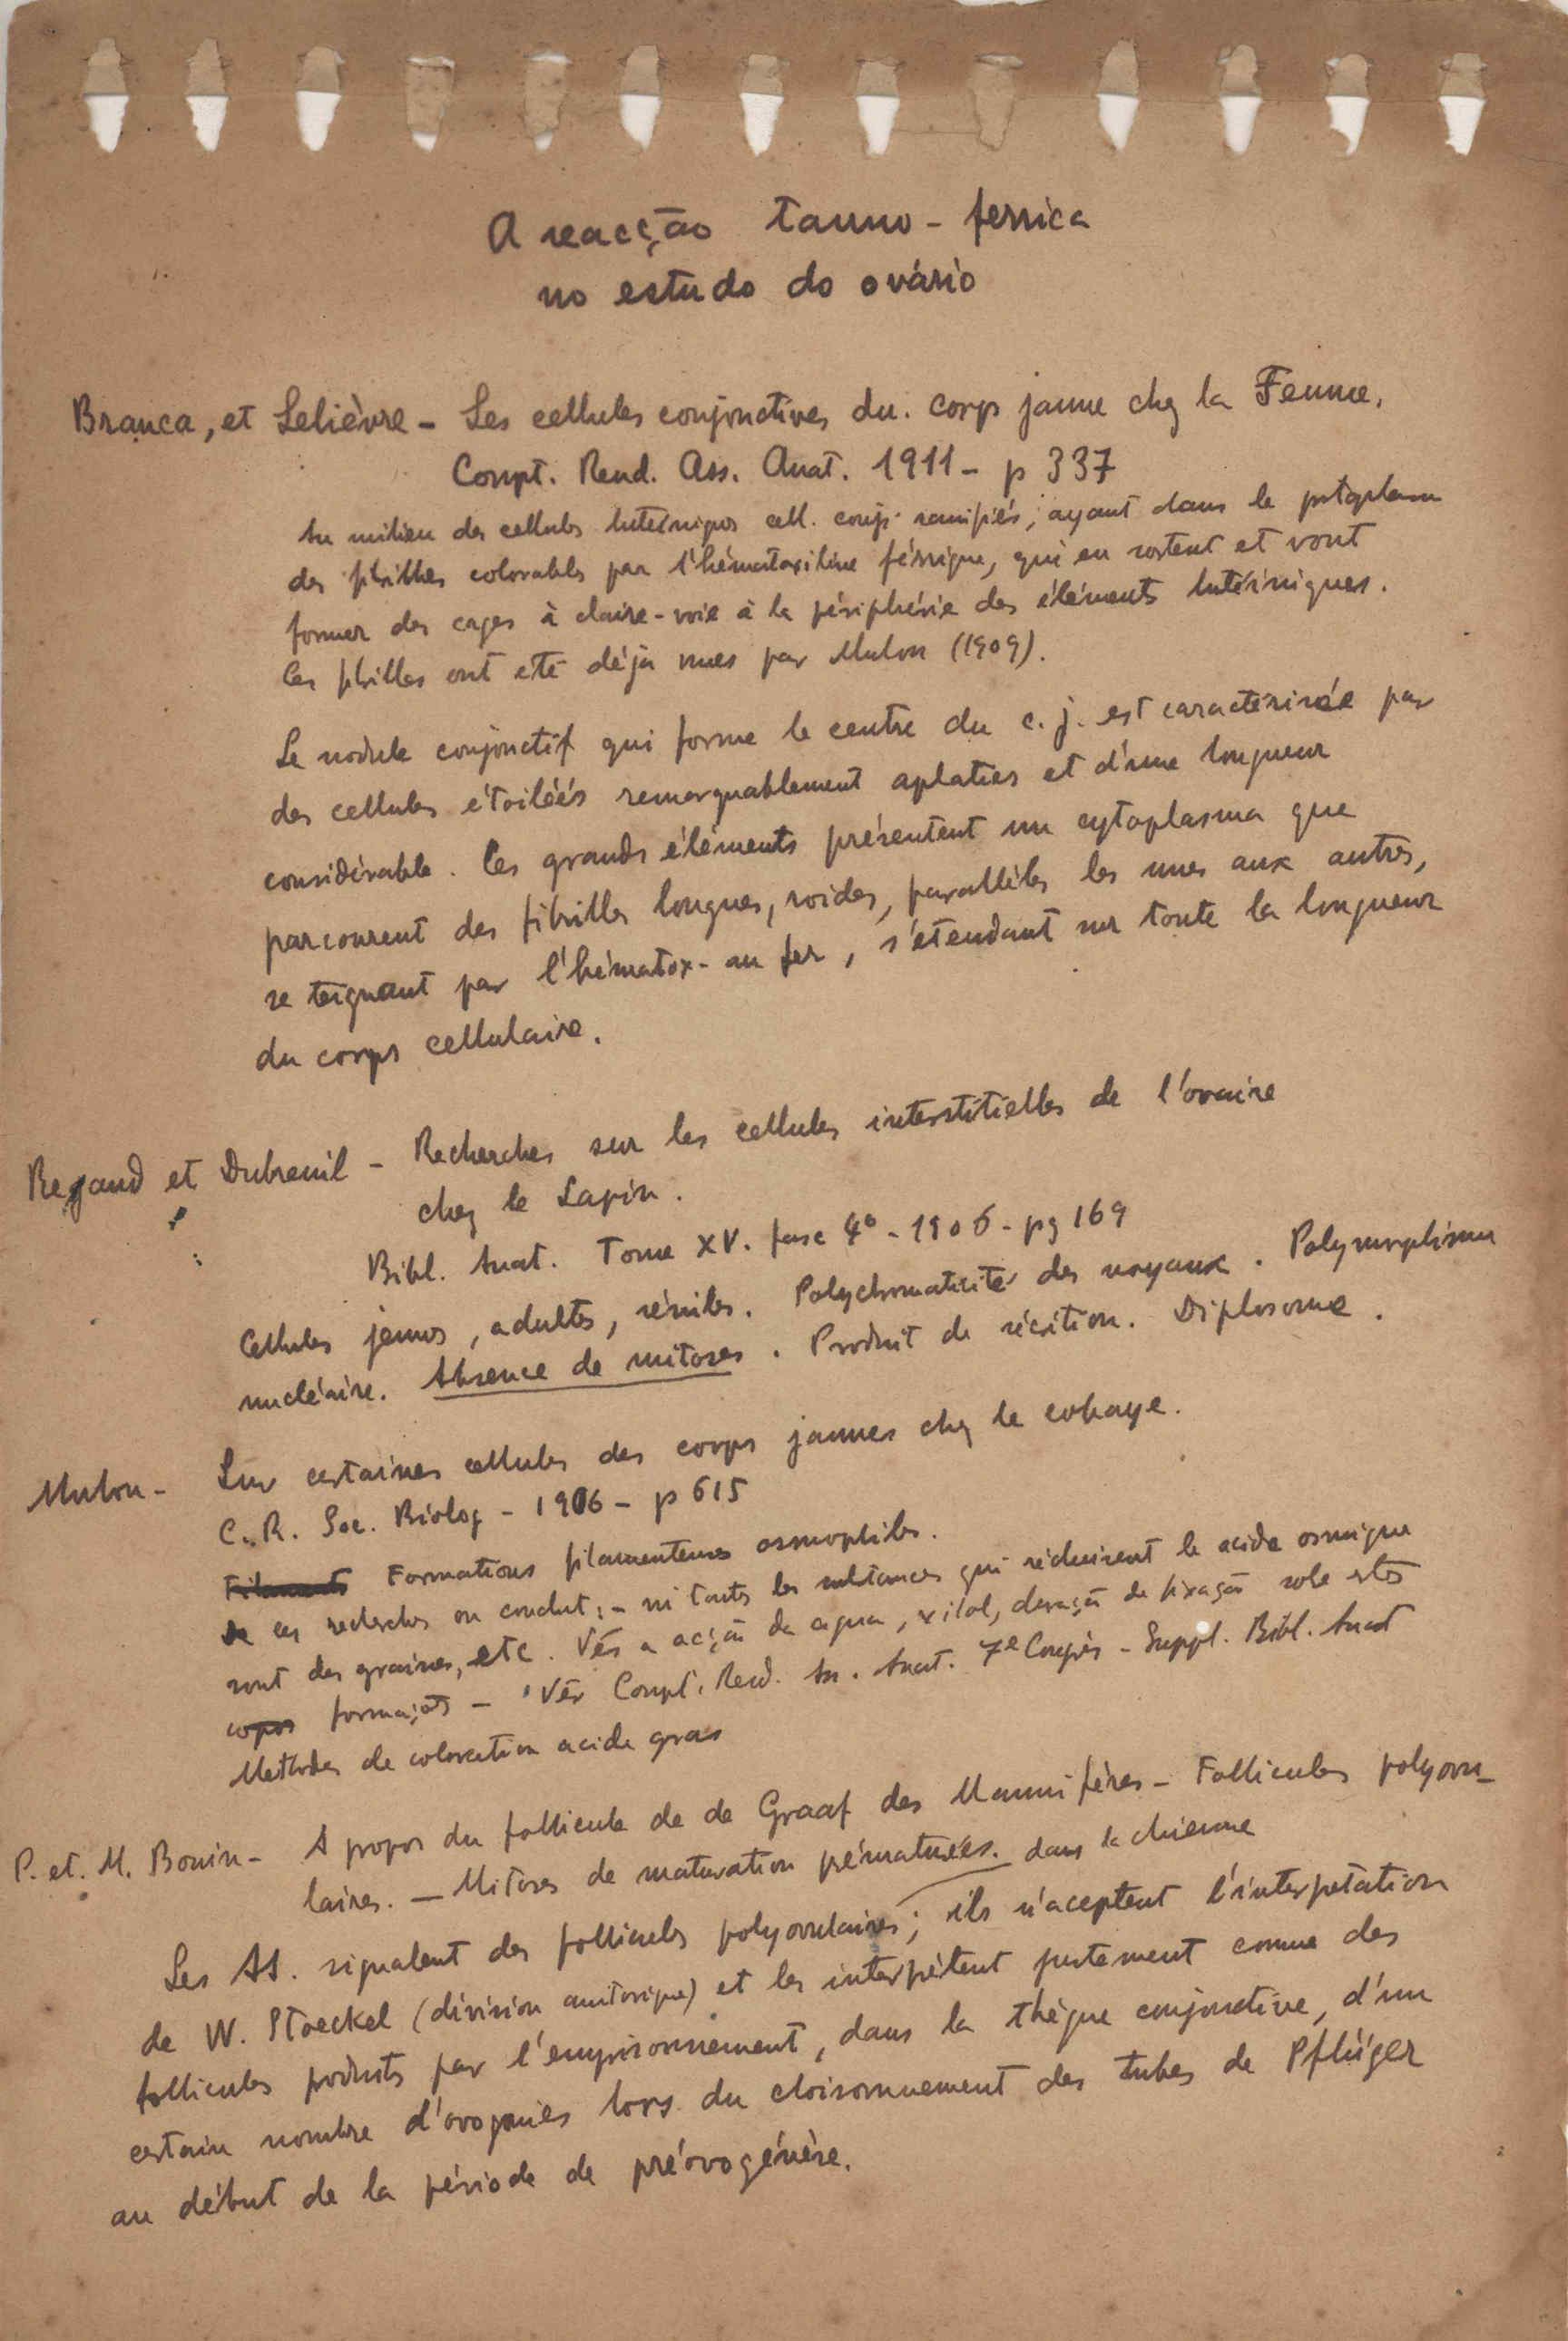 A reacção tanno-ferrica
no estudo do ovário
Branca, et Lelièvre - Les cellules conjonctives du. corps jaune chez la Femme.
Compt. Rend. Ass. Anat. 1911 - p 337
Au milieu des cellules lutéiniques cell. conj. ramifiés, ayant dans le protoplasm
des fibrilles colorables par l'hématoxiline férrique, qui en sortent et vont
former des cages à claire-voie à la périphérie des éléments lutéiniques.
Ces fibrilles ont eté déjà vues par Mulon (1909).
Le nodule conjonctif qui forme le centre du c. j. est caractérisée par
des cellules étoiléés remarquablement aplaties et d'une longueur
considérable. Ces grands éléments présentent un cytoplasma que
parcourent des fibrilles longues, roides, parallèles les unes aux autres,
se teignant par l'hématox- au fer, s'étendant sur toute la longueur
du corps cellulaire.
Regaud et Dubreuil - Recherches sur les cellules interstitielles de l'ovaire
chez le Lapin.
Bibl. Anat. Tome XV. fasc 4º - 1906 - pg 169
Cellules jeunes, adultes, séniles. Polychromaticité des noyaux. Polymorphisme
nucléaire. Absence de mitoses. Produit de sécrétion. Diplosome.
Mulon - Sur certaines cellules des corps jaunes chez le cobaye.
C. R. Soc. Biolog - 1906 - p 615
Filaments Formations filamenteuses osmophiles.
De ces recherches on conclut: - ni toutes les substances qui réduisent le acide osmique
sont des graisses, etc. Vêr a acção da agua, xilol, duração da fixação sobre estas
corpos formações - Vêr Compt. Rend. Ass. Anat. 7e Congrès - Suppl. Bibl. Anat
Methodes de coloration acide gras
P. et. M. Bouin - A propos du follicule de de Graaf des Mammiféres - Follicules polyovu-
laires. - Mitoses de maturation prématurées. dans la chienne
Les AA. signalent des follicules polyovulaires; ils n'aceptent l'interprétation
de W. Stoeckel (division amitosique) et les interprétent justement comme des
follicules produits par l'emprisonnement, dans la thèque conjonctive, d'un
certain nombre d'ovogonies lors du cloisonnement des tubes de Pflüger
au début de la période de préovogénèse.